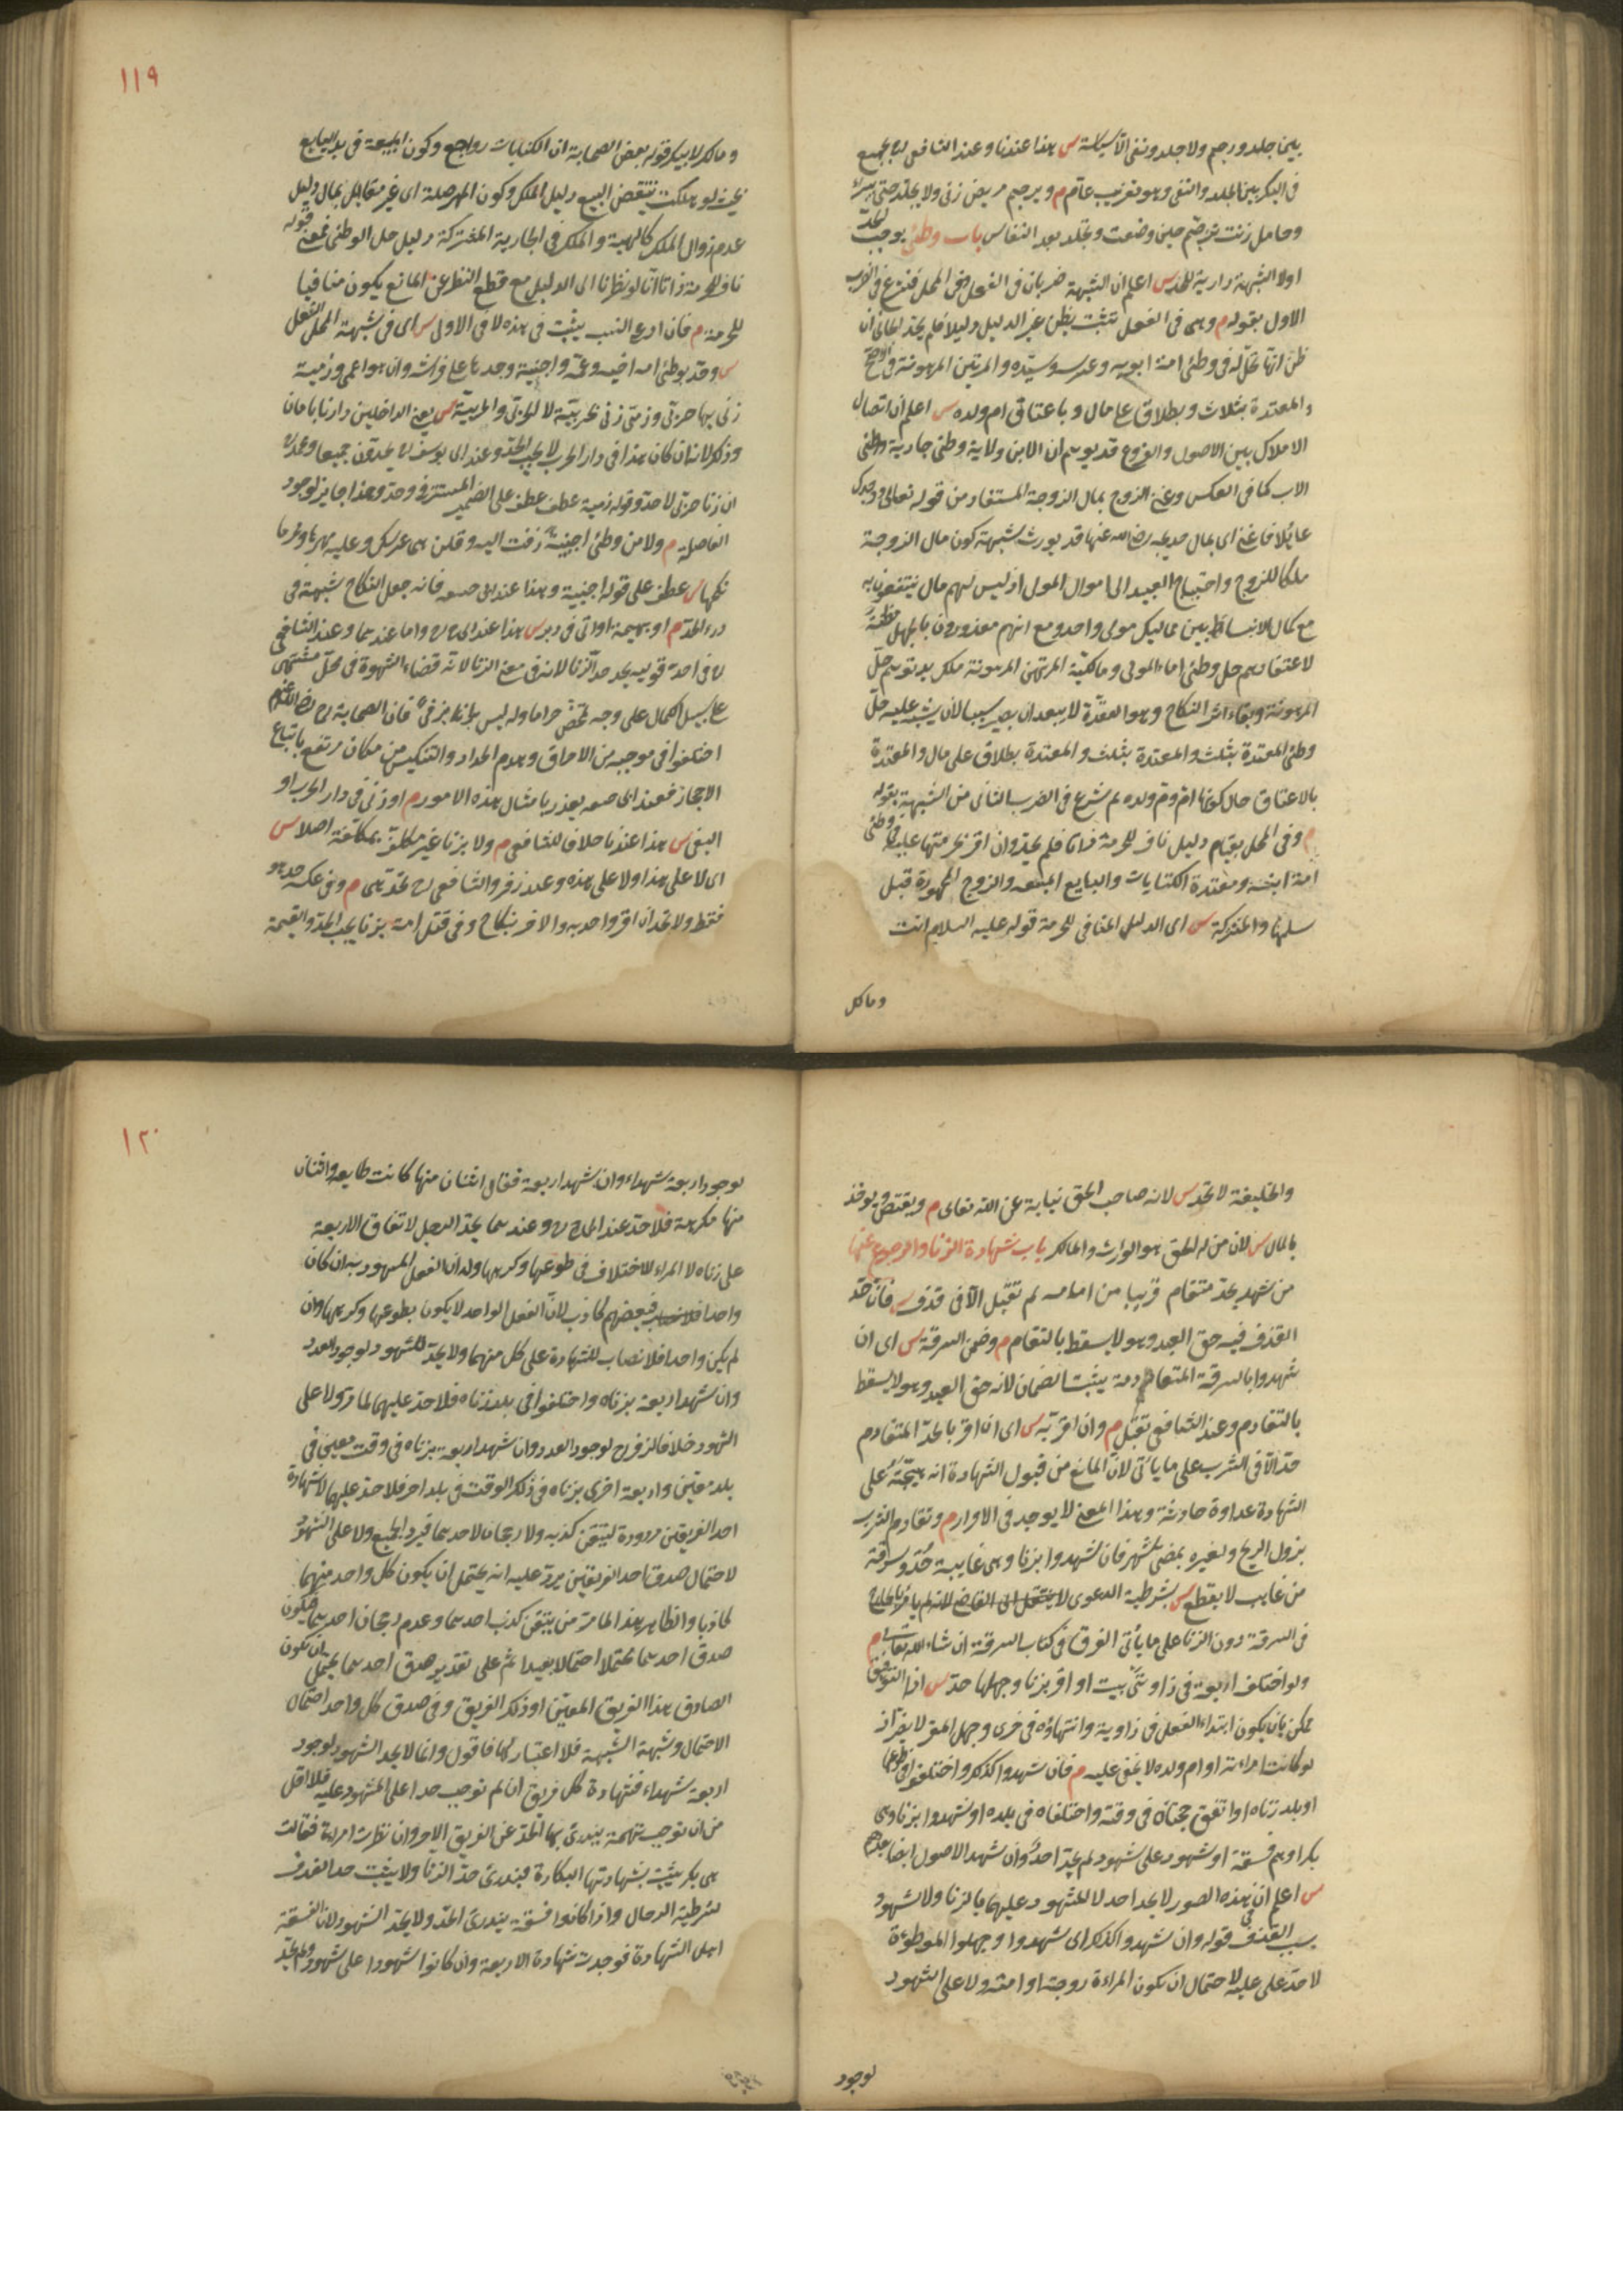 بين جلد ورجم ولا جلد ونفى الا سياسة س هذا عندنا وعند الشافعى رح يجمع
فى البكر بين الجلد والنفى وهو تغريب عام م ويرجم مريض زنى ولا يجلد حتى يبرئ
وحامل زنت ترجم حين وضعت وتجلد بعد النفاس باب وطئ يوجب الحد
اولا الشبهة دارية للحد س اعلم ان الشبهة ضربان فى الفعل وفى المحل فشرع فى الضرب
الاول بقوله م وهى فى الفعل تثبت بظن غير الدليل دليلا فلم يحد الجانى ان
ظن انها تحل له فى وطئ امة ابويه وعرسه وسيده والمرتهن المرهونة فى الاصح
والمعتدة بثلاث وبطلاق على مال وباعتاق ام ولده س اعلم ان اتصال
الاملاك بين الاصول والفروع قد يوهم ان للابن ولاية وطئ جارية
الاب كما فى العكس وغنى الزوج بمال الزوجة المستفاد من قوله تعالى ووجدك
عائلا فاغنى اى بمال خديجة رضى الله عنها قد يورث شبهة كون مال الزوجة
ملكا للزوج واحتياج العبيد الى اموال المولى اذ ليس لهم مال ينتفعون به
مع كمال الانبساط بين مماليك مولى واحد ومع انهم معذورون بالجهل مظنة
لاعتقادهم حل وطئ اماء المولى ومالكية المرتهن المرهونة ملك يد توهم حل
المرهونة وبقاء اثر النكاح وهو العدة لا يبعد ان يصير سببا لان يشتبه عليه حل
وطئ المعتدة بثلث والمعتدة بثلث والمعتدة بطلاق على مال والمعتدة
بالاعتاق حال كونها ام ولده ثم شرع فى الضرب الثانى من الشبهة بقوله
م وفى المحل بقيام دليل ناف للحرمة ذاتا فلم يحد وان اقر بحرمتها عليه فى وطئ
امة ابنه ومعتدة الكنايات والبايع المبيعة والزوج الممهورة قبل
سلمها والمشتركة س اى الدليل المنافى للحرمة قوله عليه السلام انت
ومالك
١١٩
ومالك لابيك وقول بعض الصحابة ان الكنايات رواجع وكون المبيعة فى يد البايع
بحيث لو هلكت ينتقض البيع دليل الملك وكون المهر صلة اى غير مقابل بمال دليل
عدم زوال الملك كالهبة والملك فى الجارية المشتركة دليل حل الوطئ فمعنى قوله
ناف للحرمة ذاتا انا لو نظرنا الى الدليل مع قطع النظر عن المانع يكون منافيا
للحرمة م فان ادعى النسب يثبت فى هذه لا فى الاولى س اى فى شبهة المحل لا الفعل
س وحد بوطئ امة اخيه وعمه واجنبية وجدها على فراشه وان هو اعمى وذمية
زنى بها حربى وذمى زنى بحربية لا الحربى والحربية س يعنى الداخلين دارنا بامان
وذكر لانه ان كان هذا فى دار الحرب لا يجب الحد وعند ابى يوسف رح يحدون جميعا وعند
ان زنا حربى لا حد وقوله ذمية عطف على الضمير المستتر فى وحد وهذا جايز لوجود
الفاصلة م ولا من وطئ اجنبية زفت اليه وقلن هى عرسك وعليه مهرها ومحرما
نكحها س عطف على قوله اجنبية وهذا عند ابى حنيفة فانه جعل النكاح شبهة فى
درء الحد م او بهيمة او اتى فى دبر س هذا عند ابى ح رح واما عندهما وعند الشافعى
رح فى احد قوليه يحد حد الزنا لانه فى معنى الزنا لانه قضاء الشهوة فى محل مشتهى
على سبيل الكمال على وجه تمحض حراما وله ليس بزنا فان الصحابة رضى الله عنهم
اختلفوا فى موجبه من الاحراق وهدم الجدار والتنكيس من مكان مرتفع باتباع
الاحجار فعند ابى حنيفة يعزر بامثال هذه الامور م او زنى فى دار الحرب او
البغى س هذا عندنا خلافا للشافعى م ولا بزنا غير مكلف بمكلفة اصلا س
اى لا على هذا ولا على هذه وعند زفر والشافعى رح تحد هى م وفى عكسه حد هو
فقط ولا تحد ان اقر واحد به والاخر بنكاح وفى قتل امة بزنا يجب الحد والقيمة
والخليفة لا تحد س لانه صاحب الحق نيابة عن الله تعالى م ويقتص ويوخذ
بالمال س لان من له الحق هو الوارث والمالك باب شهادة الزنا والرجوع عنها
من شهد بحد متقادم قريبا من امامه لم تقبل الا فى قذف س فان حد
القذف فيه حق العبد وهو لا يسقط بالتقادم م وضمن السرقة س اى ان
شهدوا بالسرقة المتقادمة يثبت الضمان لانه حق العبد وهو لا يسقط
بالتقادم وعند الشافعى تقبل م وان اقر به س اى ان اقر بالحد المتقادم
حد الا فى الشرب على ما يأتى لان المانع من قبول الشهادة انه هيجته على
الشهادة عداوة حادثة وهذا المعنى لا يوجد فى الاقرار م وتقادم الشرب
بزوال الريح ولغيره بمضى شهر فان شهدوا بزنا وهى غايبة حد وسرقة
من غايب لا يقطع س بشرطية الدعوى
فى السرقة دون الزنا على ما يأتى الفرق فى كتاب السرقة ان شاء الله تعالى م
ولو اختلف اربعة فى زاويتى بيت او اقر بزنا وجهلها حد س اذا التوفيق
ممكن بان يكون ابتداء الفعل فى زاوية وانتهاؤه فى اخرى وجهل المقر لا يضر اذ
لو كانت امراته او ام ولده لا يخفى عليه م فان شهدوا كذلك واختلفوا فى طوعها
او بلد زناه او اتفق حجتاه فى وقته واختلفاه فى بلده او شهدوا بزنا وهى
بكر او هم فسقة او شهود على شهود لم يحد احد وان شهد الاصول ايضا بعدهم
س اعلم ان هذه الصور لا يحد احد لا المشهود عليهما بالزنا ولا شهود
بسبب القذف فى قوله وان شهدوا كذلك اى شهدوا وجهلوا الموطوءة
لا حد على عليه لاحتمال ان يكون المراءة زوجته او امته ولا على الشهود
لوجود
١٢٠
لوجود اربعة شهداء وان شهد اربعة فقال اثنان منها كانت طايعة واثنان
منها مكرهة فلا حد عند ابى ح رح وعندهما يحد الرجل لاتفاق الاربعة
على زناه لا المراة للاختلاف فى طوعها وكرهها وله ان الفعل المشهود به ان كان
واحدا فبعضهم كاذب لان الفعل الواحد لا يكون بطوعها وكرهها وان
لم يكن واحدا فلا نصاب للشهادة على كل منهما ولا يحد الشهود لوجود العدد
وان شهد اربعة بزناه واختلفوا فى بلد زناه فلا حد عليهما لما مر ولا على
الشهود خلافا لزفر رح لوجود العدد وان شهد اربعة بزناه فى وقت معين فى
بلد معين واربعة اخرى بزناه فى ذلك الوقت فى بلد اخر فلا حد عليهما لان شهادة
احد الفريقين مردودة لتيقن كذبه ولا رجحان لاحدهما فيرد الجميع ولا على الشهود
لاحتمال صدق احد الفريقين يرد عليه انه يحتمل ان يكون كل واحد منهما
كاذبا والظاهر هذا لما مر من تيقن كذب احدهما وعدم رجحان احدهما فيكون
صدق احدهما محتملا احتمالا بعيدا ثم على تقدير صدق احدهما يحتمل ان يكون
الصادق هذا الفريق المعين او ذلك الفريق وفى صدق كل واحد احتمال
الاحتمال وشبهة الشبهة فلا اعتبار لها فاقول وانما لا يحد الشهود لوجود
اربعة شهداء فشهادة كل فريق ان لم توجب حدا على المشهود عليه فلا اقل
من ان توجب تهمة يندرئ بها الحد عن الفريق الاخر وان نظرت امراة فقالت
هى بكر يثبت بشهادتها البكارة فيندرئ حد الزنا ولا يثبت حد القذف
لشرطية الرجال واذا كانوا فسقة يندرئ الحد ولا يحد الشهود لان الفسقة
اهل الشهادة فوجدت شهادة الاربعة وان كانوا شهودا على شهود ولم يحد